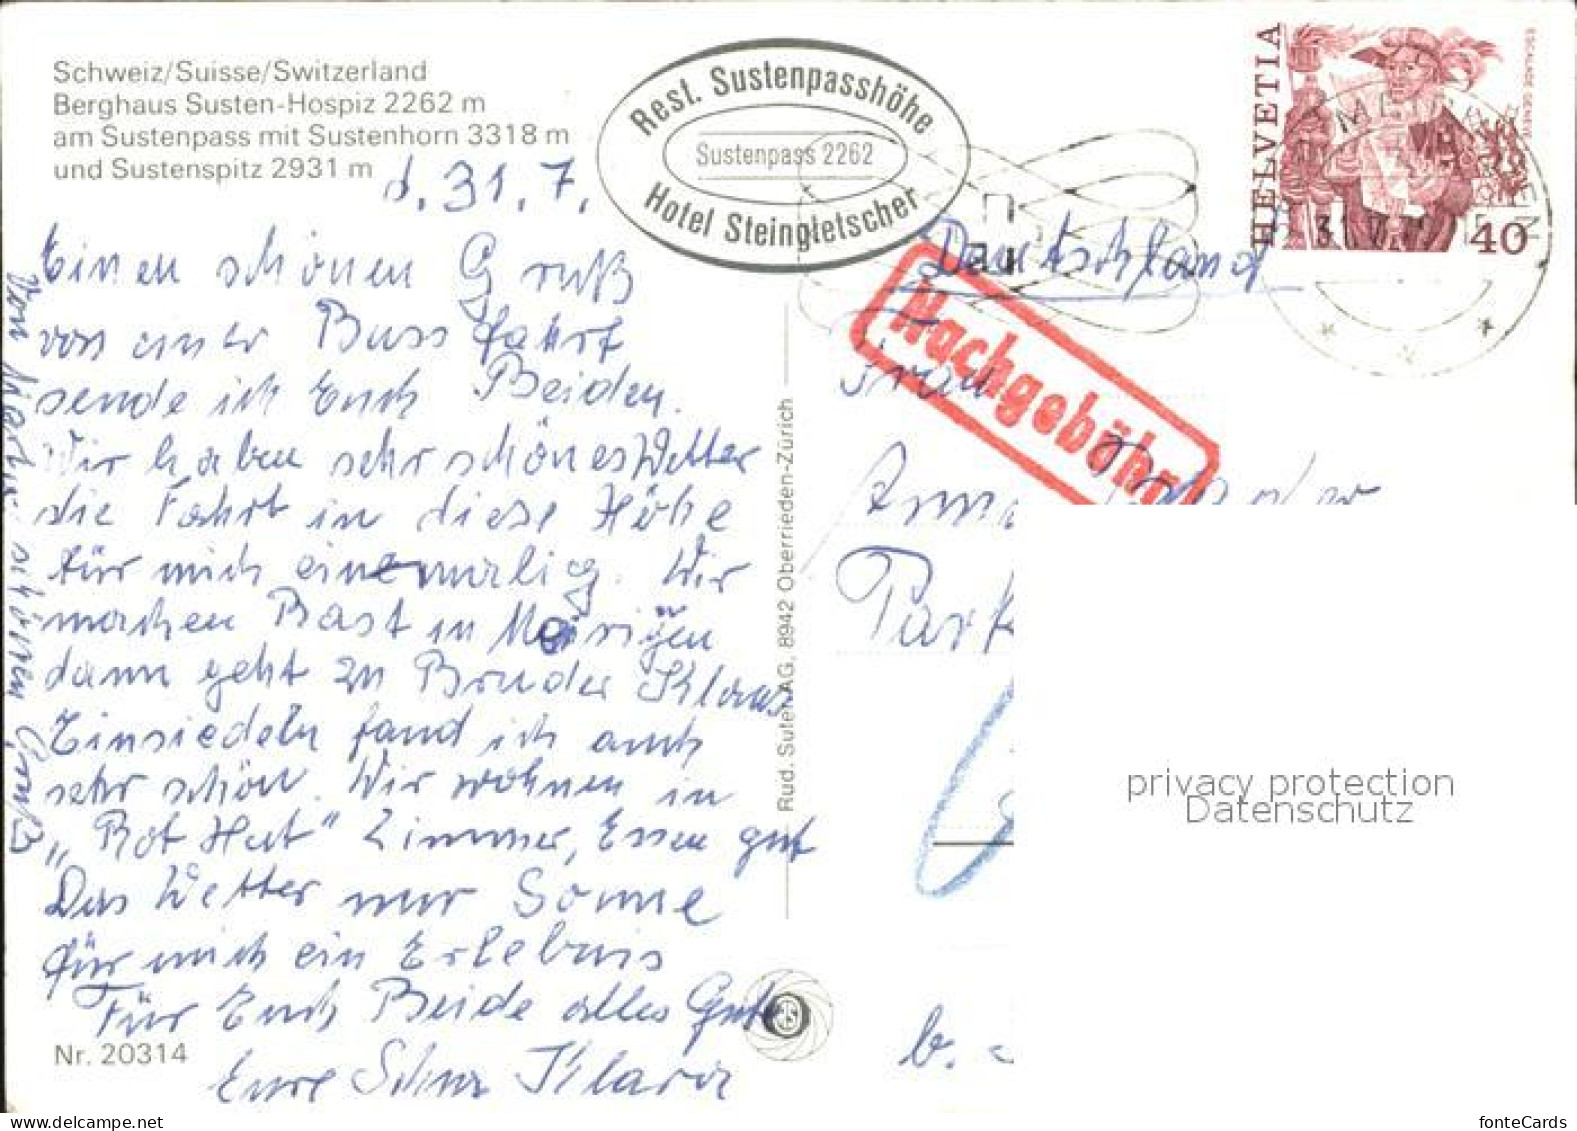 Schweiz/Suisse/Switzerland
Berghaus Susten-Hospiz 2262 m
am Sustenpass mit Sustenhorn 3318 m
und Sustenspitz 2931 m
d. 31. 7.
Einen schönen Gruß
von einer Buss fahrt
sende ich Euch Beiden.
Wir haben sehr schönes Wetter
die Fahrt in diese Höhe
für mich einmalig. Wir
machen Rast in
dann geht zu Bruder Klaus
Einsiedeln fand ich auch
sehr schön. Wir wohnen in
"Rot Hut" Zimmer, Essen gut
Das Wetter nur Sonne
für mich ein Erlebnis
Für Euch Beide alles Gute
Eure Klara
Von schönen Gruß
Nr. 20314
Rud. Suter AG, 8942 Oberrieden-Zürich
Rest. Sustenpasshöhe
Sustenpass 2262
Hotel Steingletscher
HELVETIA
ESCALADE GENEVE
40
Deutschland
Nachgebühr
Frau
Anna
Park
b.
privacy protection
Datenschutz
fonteCards